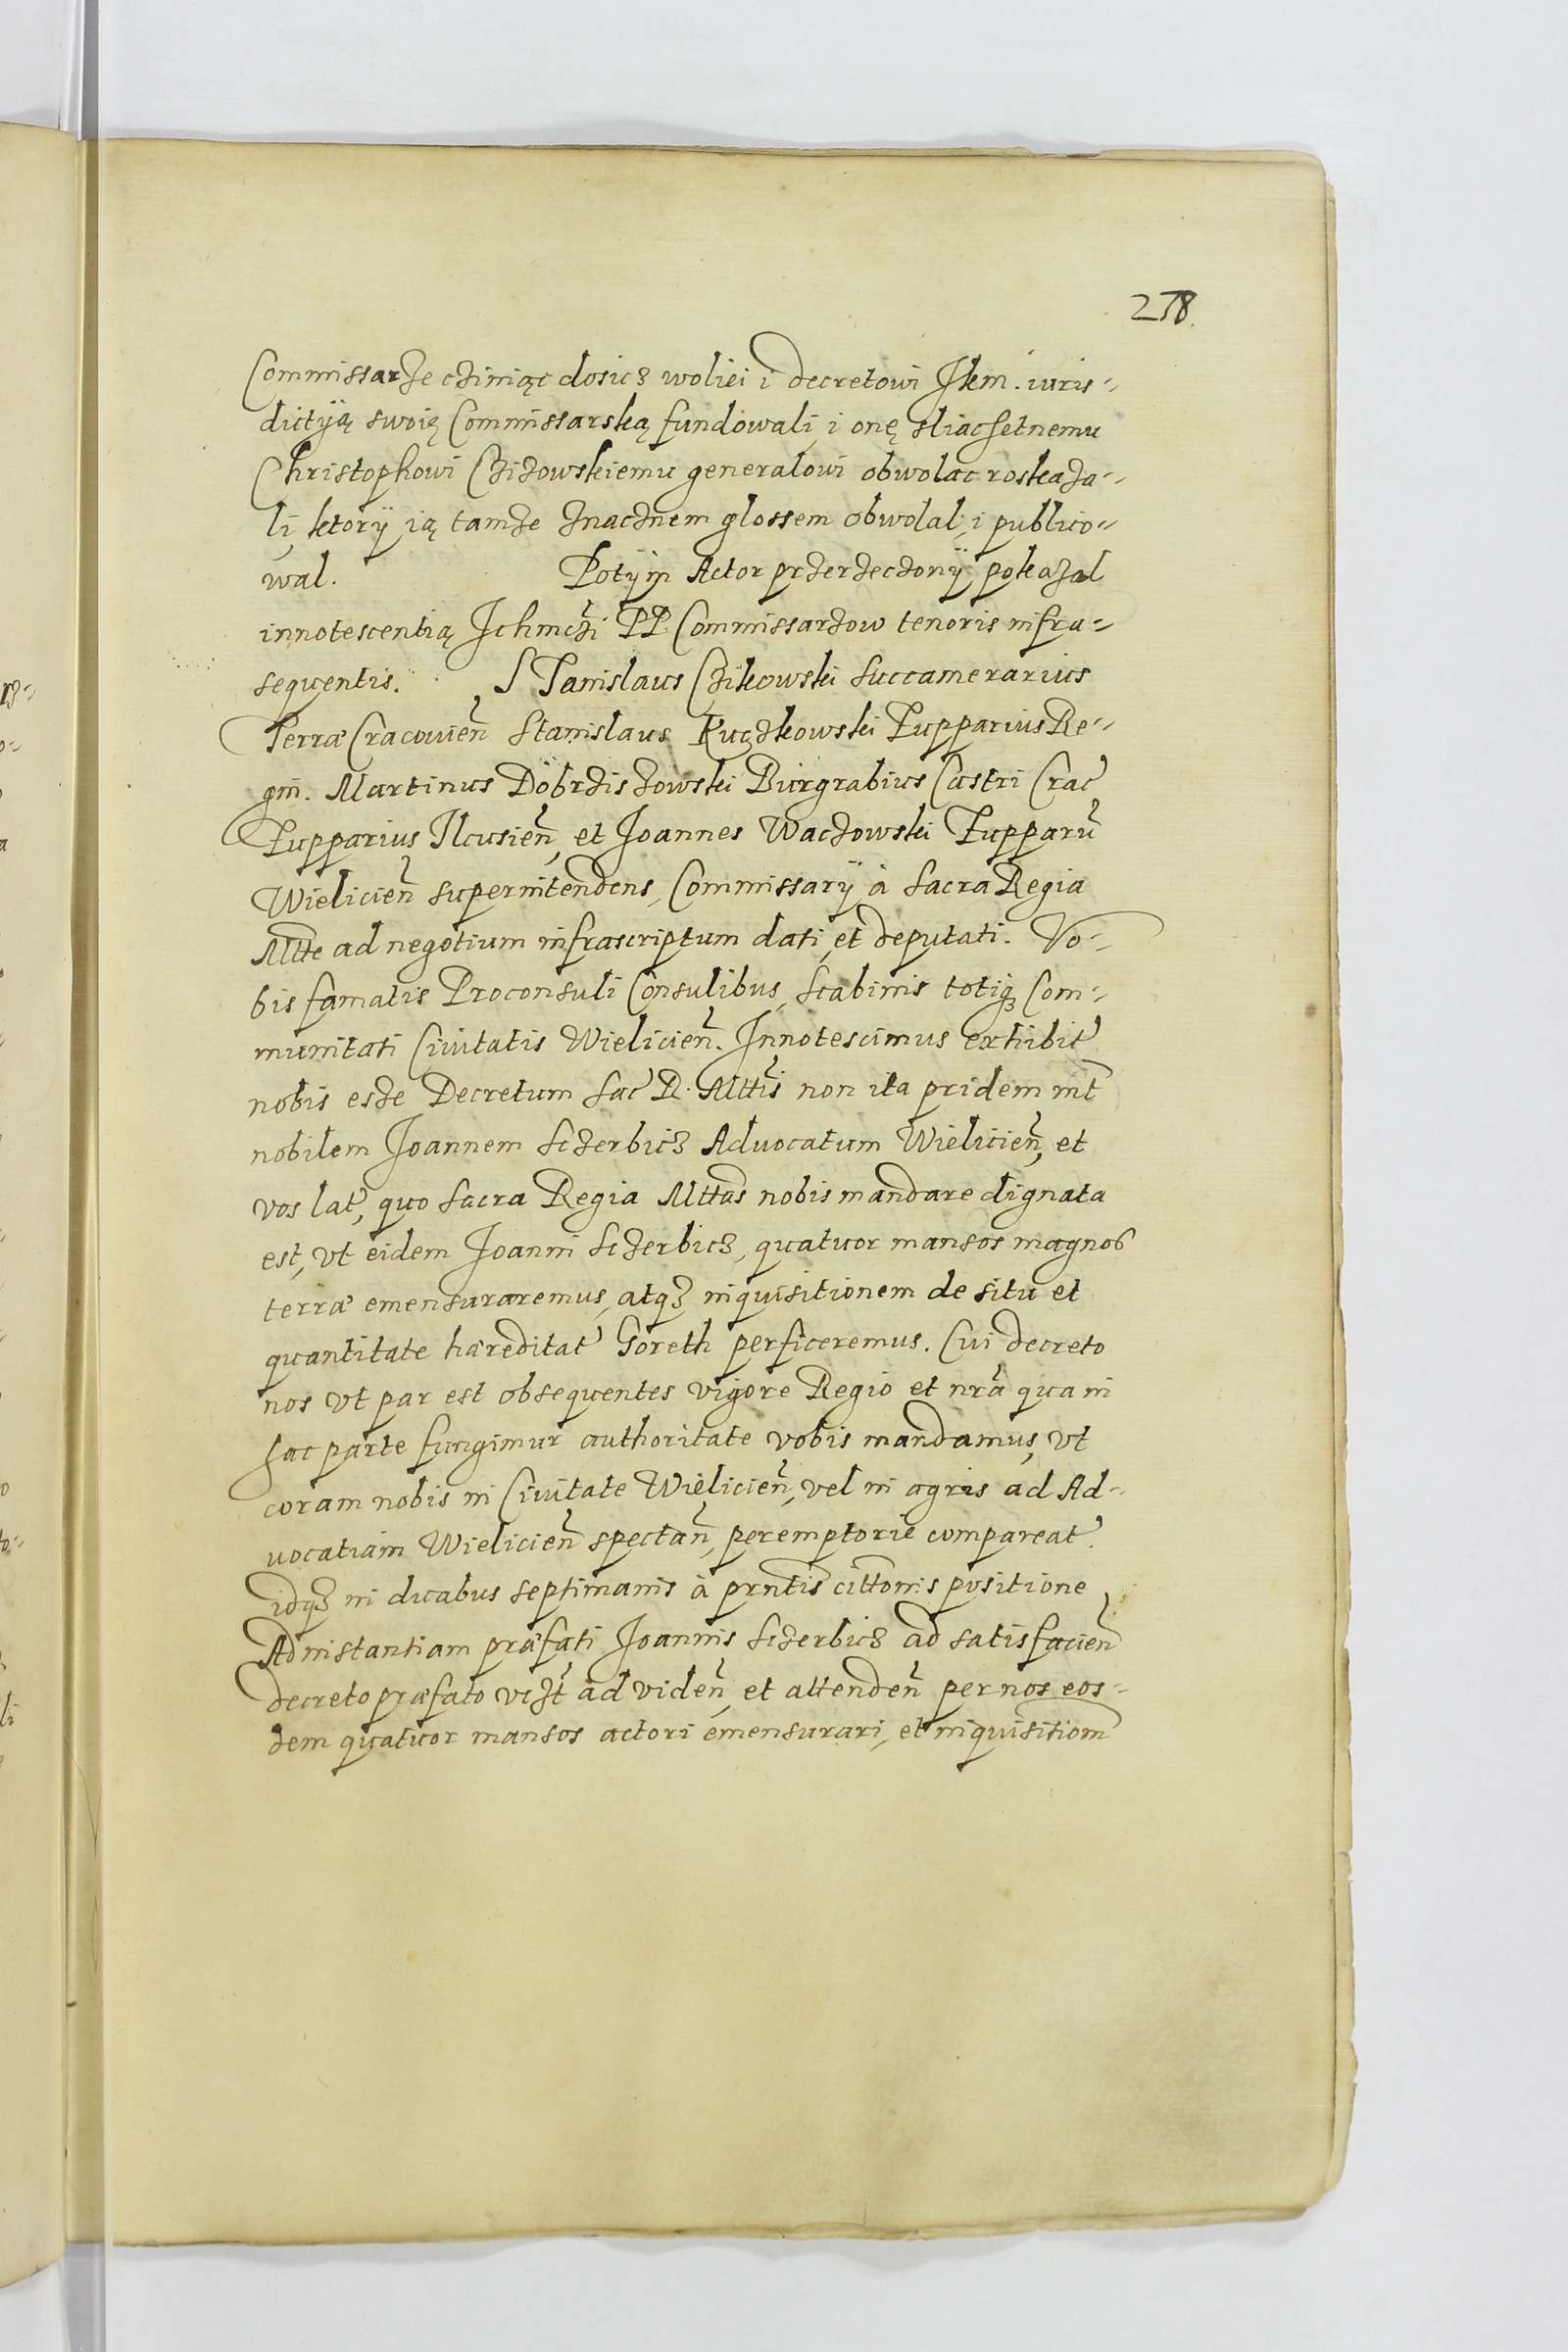 278.
Commissarze cziniąc dosicz woliei i decretowi Jkm. iuris-
dictyią swoią Commissarską fundowali, i onę sliachetnemu
Christophowi Czizowskiemu generalowi obwolac roskaza-
li, ktory ią tamze znacznem glossem obwolal, i publico-
wal. Potym Actor przerzeczony pokazal
innotescentią Ichmczi PP. Commissarzow tenoris infra-
sequentis. STanislaus Czikowski Succamerarius
Terræ Cracouien Stanislaus Ruczkowski Zupparius Re-
gni. Martinus Dobrziszowski Burgrabius Castri Crac
Zupparius Ilcusien, et Joannes Waczowski Zupparu
Wielicien superintendens, Commissarÿ à Sacra Regia
Mtte ad negotium infrascriptum dati, et deputati. Vo-
bis famatis Proconsuli Consulibus, Scabinis totiq3 Com-
munitati Ciuitatis Wielicien. Innotescimus exhibit
nobis esze Decretum Sac R. Mttis non ita pridem int
nobilem Joannem Sczerbicz Aduocatum Wielicien, et
vos lat, quo Sacra Regia Mttas nobis mandare dignata
est, vt eidem Joanni Sczerbicz, quatuor mansos magnos
terræ emensuraremus, atq3 inquisitionem de situ et
quantitate hæreditat Goreth perficeremus. Cui decreto
nos vt par est obsequentes vigore Regio et nra qua in
hac parte fungimur authoritate vobis mandamus, vt
coram nobis in Ciuitate Wielicien, vel in agris ad Ad-
uocatiam Wielicien spectan, peremptorie compareat.
idq3 in duabus septimanis à prntis cittonis positione
Ad instantiam præfati Joannis Sczerbicz ad satisfacien
decreto præfato vczt ad viden, et attenden per nos eos-
dem quatuor mansos actori emensurari, et inquisitiom